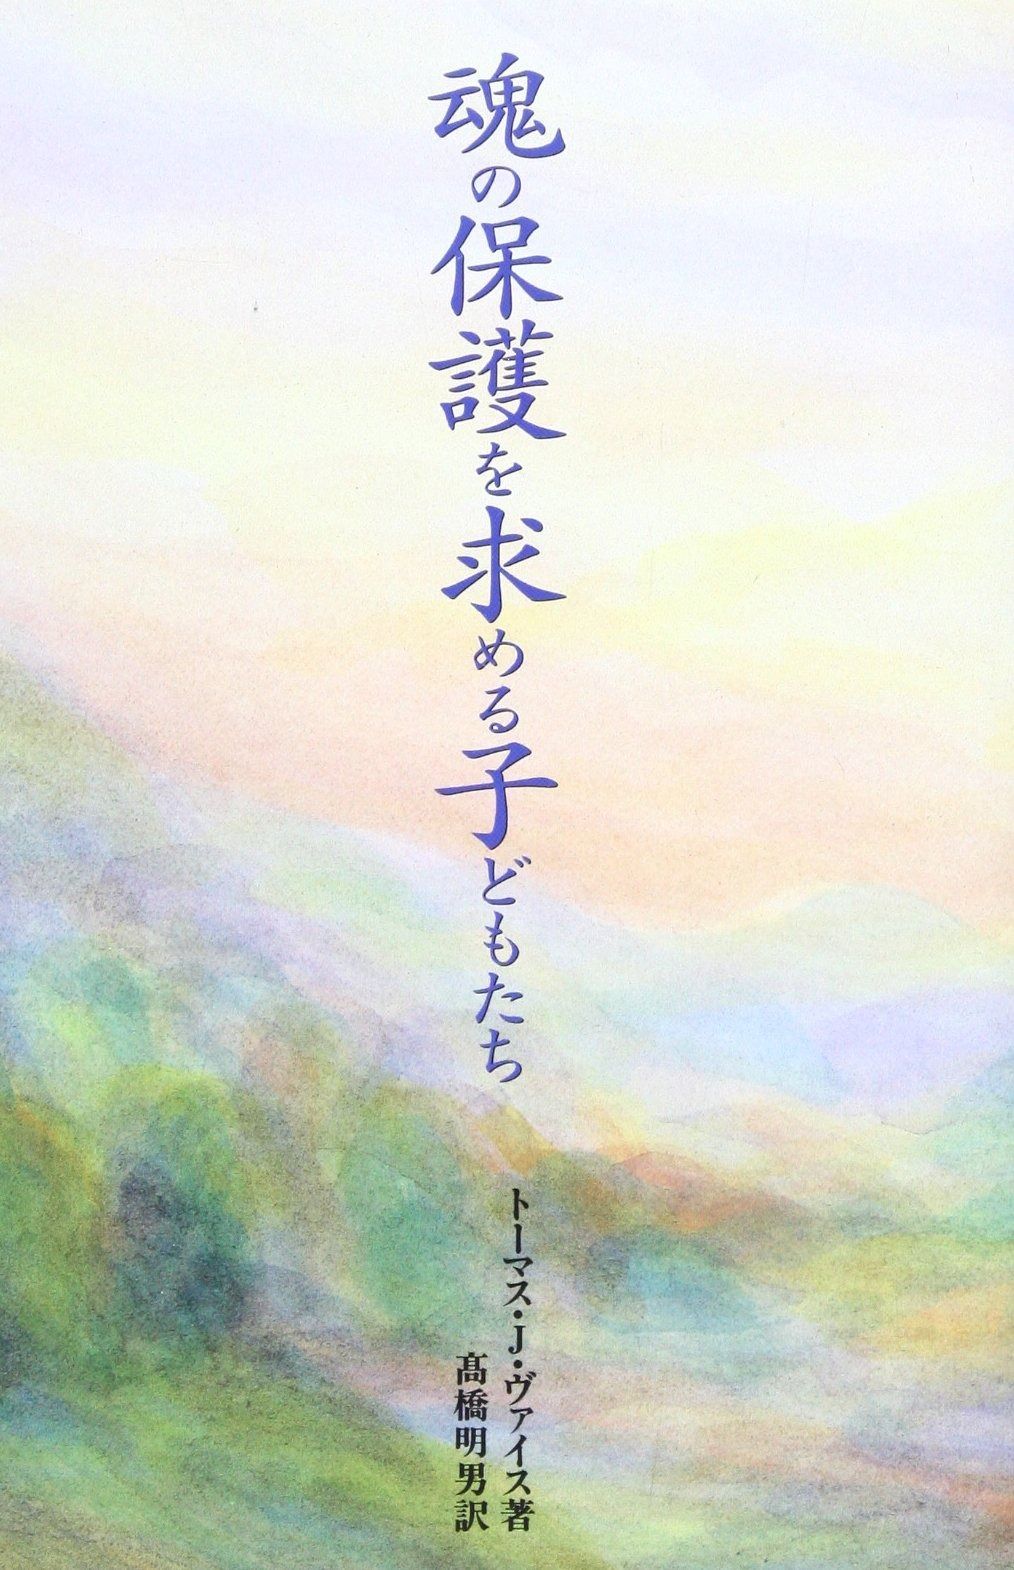 魂の保護を求める子どもたち
トーマス・J・ヴァイス著
髙橋明男訳